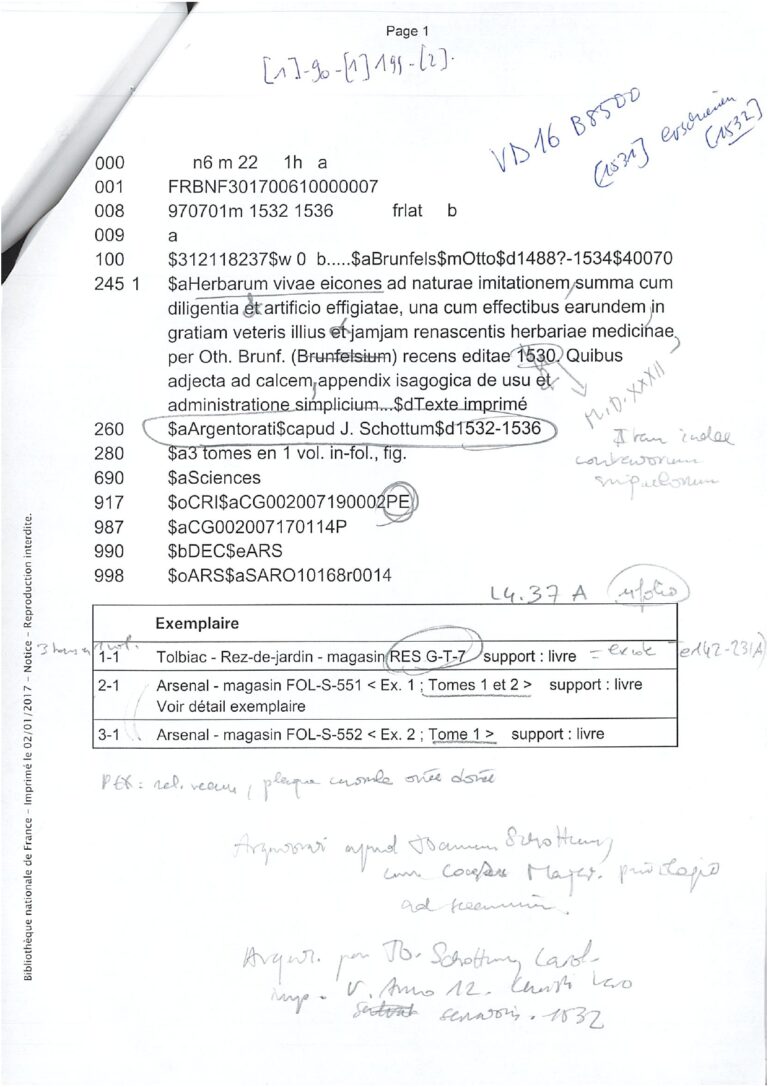 Page 1
[1]-90-[1] 199-[2].
VD16 B8500
[1531] erschienen
[1532]
000 n6 m 22 1h a
001 FRBNF301700610000007
008 970701m 1532 1536 frlat b
009 a
100 $312118237$w 0 b.....$aBrunfels$mOtto$d1488?-1534$40070
245 1 $aHerbarum vivae eicones ad naturae imitationem summa cum
diligentia et artificio effigiatae, una cum effectibus earundem in
gratiam veteris illius et jamjam renascentis herbariae medicinae
per Oth. Brunf. (Brunfelsium) recens editae 1530. Quibus
adjecta ad calcem appendix isagogica de usu et
administratione simplicium...$dTexte imprimé
M.D.XXXII
260 $aArgentorati$capud J. Schottum$d1532-1536
280 $a3 tomes en 1 vol. in-fol., fig.
690 $aSciences
917 $oCRI$aCG002007190002PE
987 $aCG002007170114P
990 $bDEC$eARS
998 $oARS$aSARO10168r0014
L4.37 A
Exemplaire
1-1 Tolbiac - Rez-de-jardin - magasin RES G-T-7 support : livre
2-1 Arsenal - magasin FOL-S-551 < Ex. 1 ; Tomes 1 et 2 > support : livre
Voir détail exemplaire
3-1 Arsenal - magasin FOL-S-552 < Ex. 2 ; Tome 1 > support : livre
Schottum
cum Majest. privilegio
Schottum Carol.
imp. V. Anno 12.
1532
Bibliothèque nationale de France – Imprimé le 02/01/2017 – Notice – Reproduction interdite.